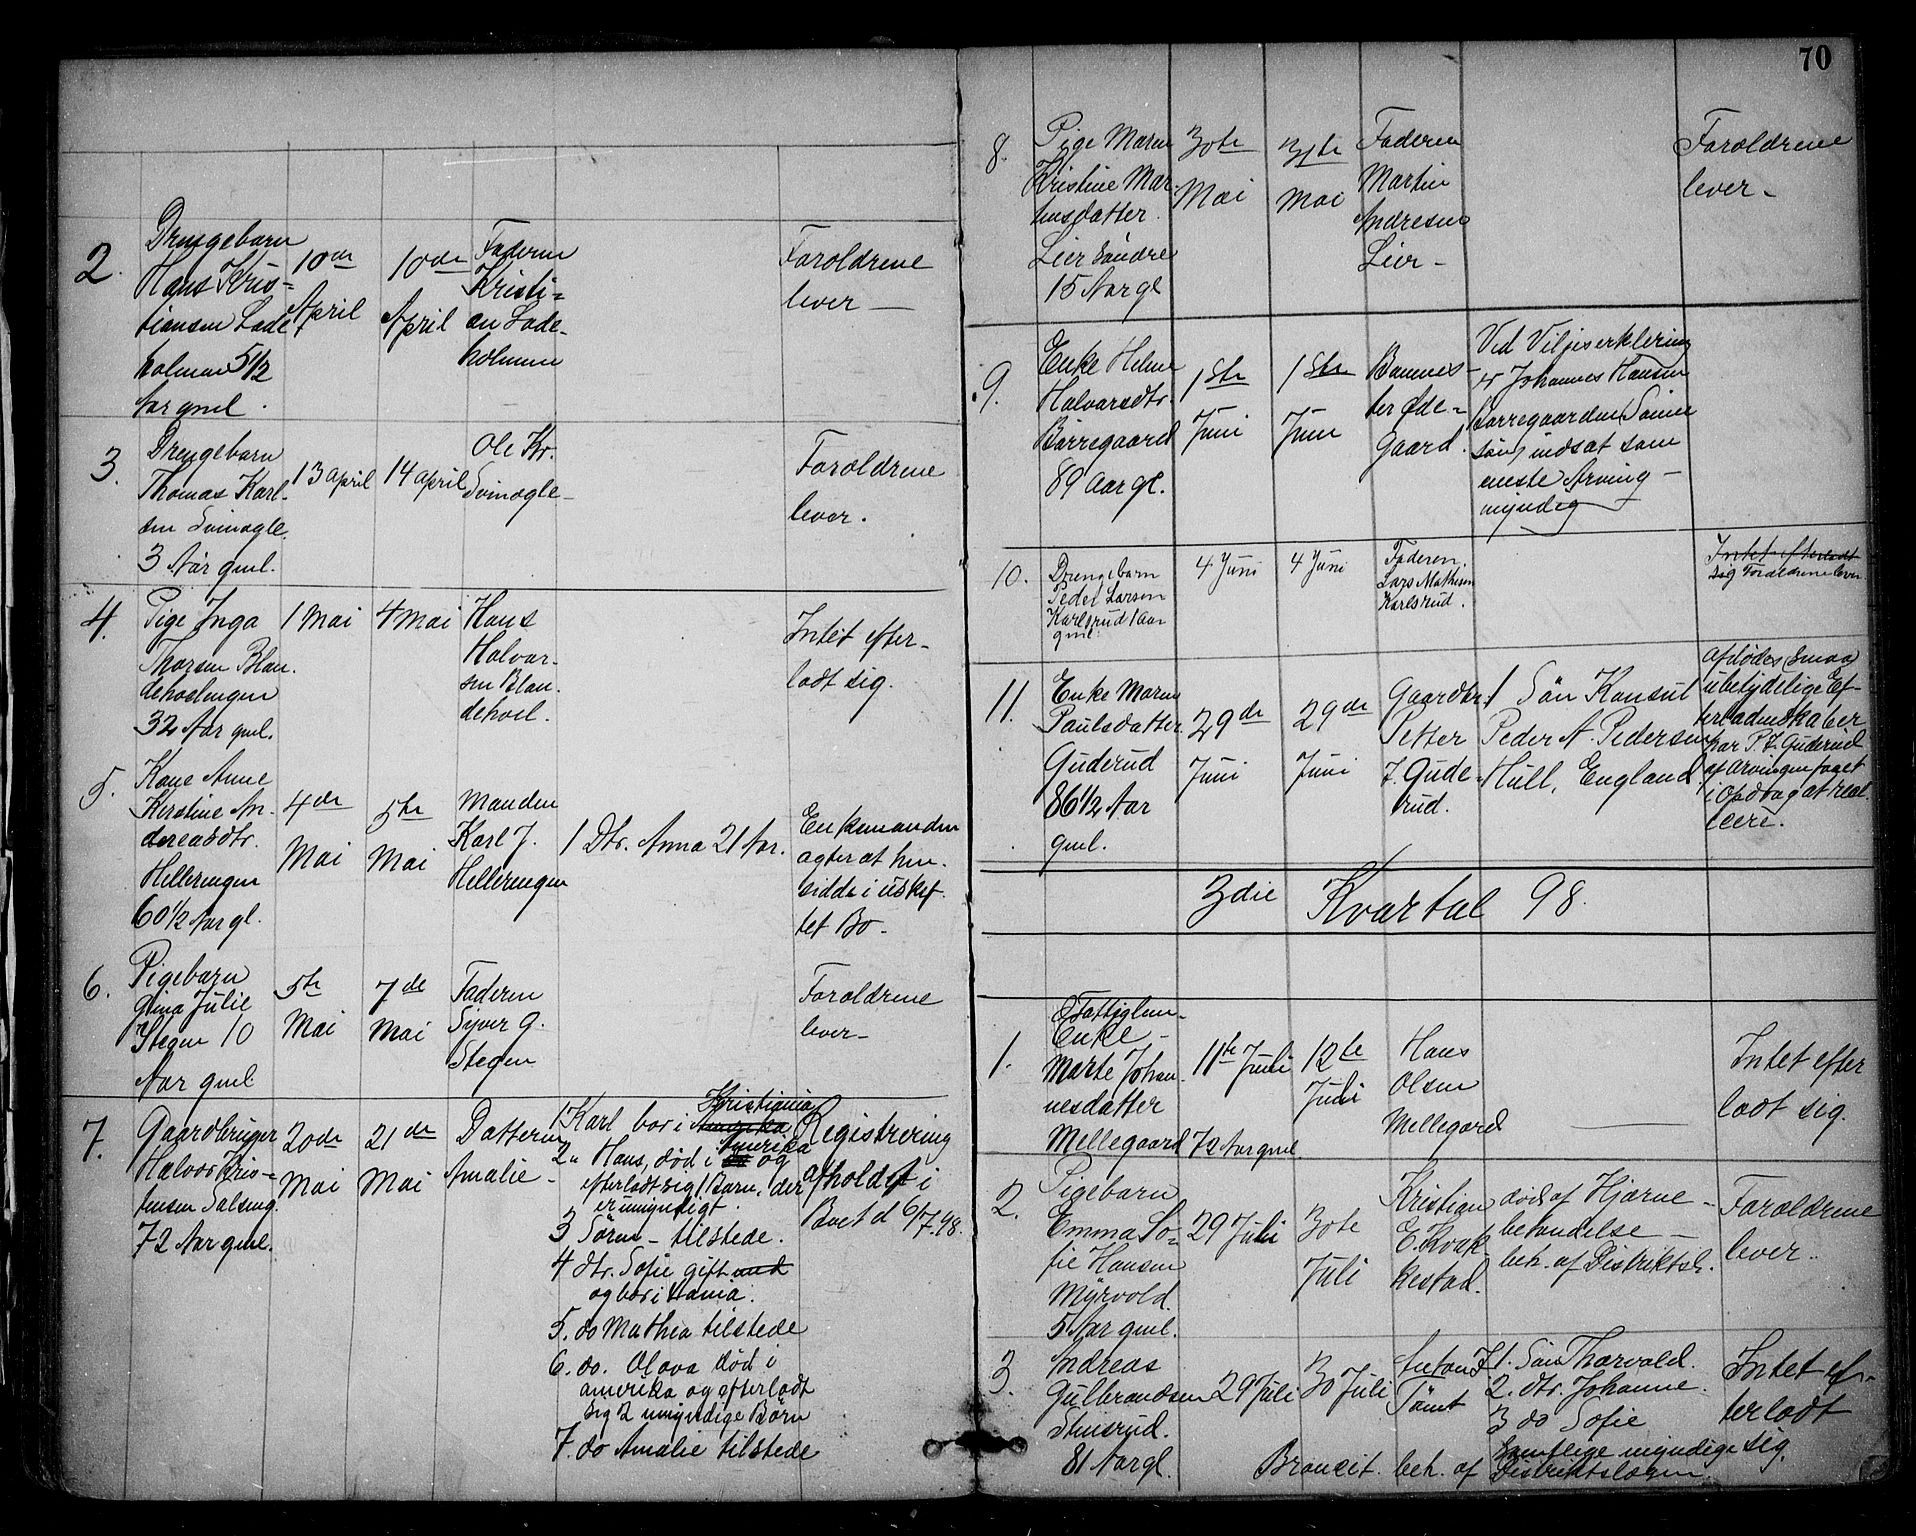 70
2.
Drengebarn
Hans Kris-
tiansen Lade-
holmen 5 1/2
Aar gml.
10de
April
10de
April
Faderen
Kristi-
an Lade-
holmen
Foroldrene
lever —
3.
Drengebarn
Thomas Karl-
sen Svinøgle
3 Aar gml.
13 April
14 april
Ole Kr.
Svinøgle
Foroldrene
lever.
4.
Pige Inga
Thorsen Blan-
dehoelengen
32 Aar gml.
1 Mai
4 Mai
Hans
Halvor-
sen Blan-
dehoel.
Intet efter-
ladt sig.
5.
Kone Anne
Kirstine An-
dreasdtr.
Hellerengen
60 1/2 Aar gl.
4de
Mai
5te
Mai
Manden
Karl J.
Hellerengen
1 Dtr. Anna 21 Aar.
Enkemanden
agter at hen-
sidde i uskif-
tet Bo.
6.
Pigebarn
Gina Julie
Stegen 10
Aar gml
5te
Mai
7de
Mai
Faderen
Syver G.
Stegen
Foroldrene
lever —
7.
Gaardbruger
Halvor Kris-
tensen Solseng.
72 Aar gml.
20de
Mai
21de
Mai
Datteren
Amalie —
Kristiania
1 Karl bor i Amerika
Amerika
2 " Hans, død i og
efterladt sig 1 Barn, der
er umyndigt.
3 Søren — tilstede.
4 dtr. Sofie gift med
og bor i Xania.
5. do Mathea tilstede
6. do. Olava død i
amerika og efterladt
sig 2 umyndige Børn
7. do Amalie tilstede
Registrering
afholdt i
Boet d 6/7.98.
8.
Pige Maren
Kristine Mar-
tinsdatter
Lier Søndre
15 Aar gl
30te
Mai
31te
Mai
Faderen
Martin
Andresen
Lier —
Foroldrene
lever —
9.
Enke Helene
Halvorsdtr.
Børregaard
89 Aar gl.
1ste
Juni
1ste
Juni
Ber Øde-
Gaard.
Ved Viljeserklering
er Johannes Hansen
Børregaarden
indsat som
eneste Arving —
myndig
10.
Drengebarn
Peder Larsen
Karlsrud 1 Aar
gml.
4 Juni
4 Juni
Faderen
Lars Mathisen
Karlsrud.
Intet efterladt
sig Foroldrene lever
11.
Enke Maren
Paulsdatter
Guderud
86 1/2 Aar
gml.
29de
Juni
29de
Juni
Gaardbr.
Petter
J. Gude-
rud.
1 Søn Konsul
Peder A. Pedersen
Hull, England.
Afdødes (smaa)
ubetydelige Ef-
terladenskaber
har P. J. Guderud
af Arvingen faaet
i Opdrag at real-
isere.
3die Kvartal 98.
1.
Fattiglem-
Enke —
Marte Johan-
nesdatter
Mellegaard 72 Aar gml.
11te Juli
12te
Juli
Hans
Olsen
Mellegard
Intet efter
ladt sig.
2.
Pigebarn
Emma So-
fie Hansen
Myrvold.
5 Aar gml.
29 Juli
30te
Juli
Kristian
E. Kvak-
kestad.
død af Hjærne-
betændelse —
beh. af Distriktsl.
Foroldrene
lever.
3.
Andreas
Gulbrandsen
Stensrud.
81 Aar gl.
29 Juli
30 Juli
Anton J.
Tømt
1. Søn Thorvald.
2. dtr. Johanne.
3 do Sofie
Samtlige myndige
Intet ef-
terladt
sig.
Broncit. beh. af Distriktslægen.